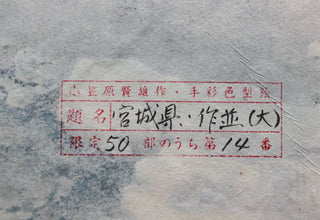 小笠原賢雄作・手彩色型絵
題名 宮城県・作並(大)
限定50部のうち第14番